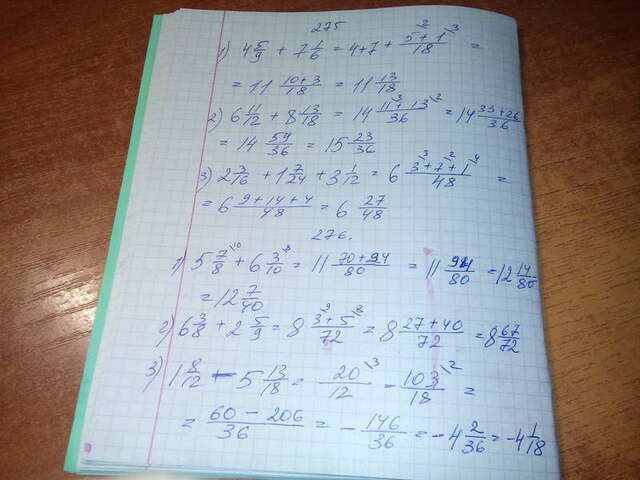 275
1) 4 5/9 + 7 1/6 = 4+7 + (5\2 + 1\3)/18 =
= 11 (10+3)/18 = 11 13/18
2) 6 11/12 + 8 13/18 = 14 (11\3 + 13\2)/36 = 14 (33+26)/36
= 14 59/36 = 15 23/36
3) 2 3/16 + 1 7/24 + 3 1/12 = 6 (3\3 + 7\2 + 1\4)/48 =
= 6 (9+14+4)/48 = 6 27/48
276.
1) 5 7/8\10 + 6 3/10\8 = 11 (70+24)/80 = 11 94/80 = 12 14/80
= 12 7/40
2) 6 3/8 + 2 5/9 = 8 (3\9 + 5\8)/72 = 8 (27+40)/72 = 8 67/72
3) 1 8/12 - 5 13/18 = 20/12\3 - 103/18\2 =
= (60 - 206)/36 = - 146/36 = -4 2/36 = -4 1/18